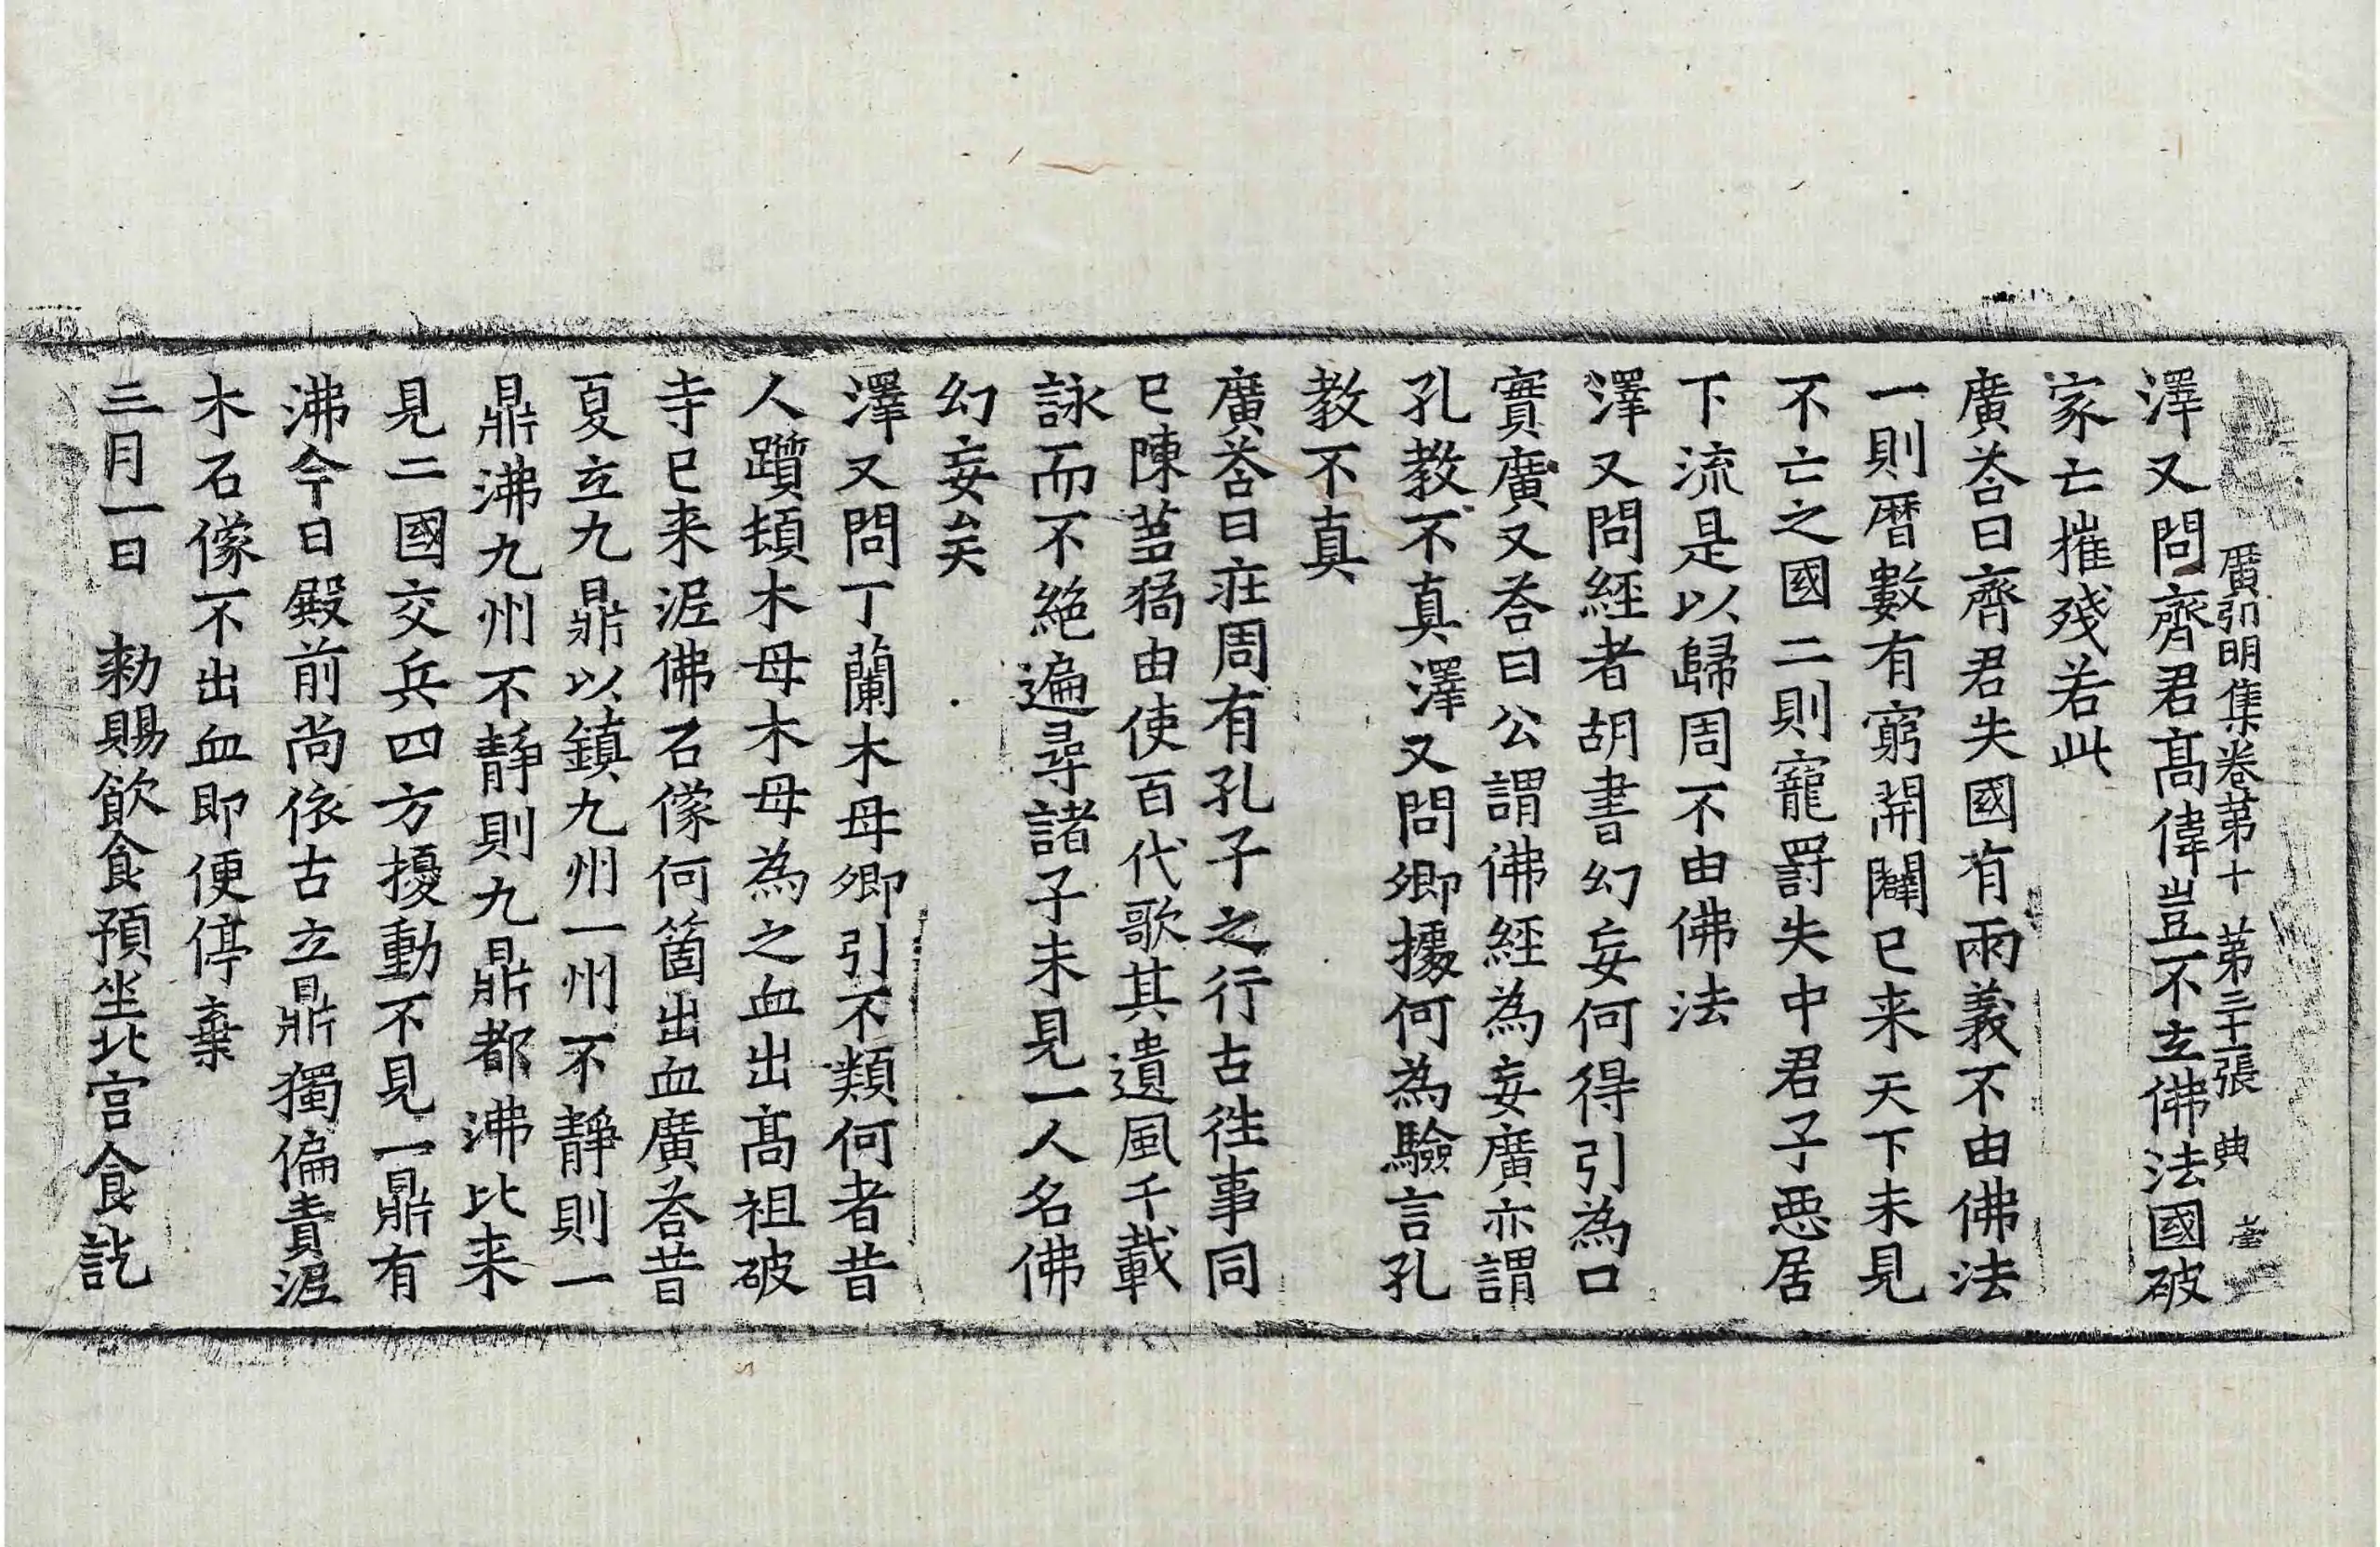 廣弘明集卷第十 第三十二張 典
澤又問齊君髙偉豈不立佛法國破
家亡摧殘若此
廣荅曰齊君失國有兩義不由佛法
一則曆數有窮開闢已来天下未見
不亡之國二則寵罸失中君子惡居
下流是以歸周不由佛法
澤又問經者胡書幻妄何得引為口
實廣又荅曰公謂佛經為妄廣亦謂
孔教不真澤又問卿據何為驗言孔
教不真
廣荅曰莊周有孔子之行古徃事同
已陳蒭猗由使百代歌其遺風千載
詠而不絕遍尋諸子未見一人名佛
幻妄矣
澤又問丁蘭木母卿引不類何者昔
人躓頓木母木母為之血出髙祖破
寺已来泥佛石像何箇出血廣荅昔
夏立九鼎以鎮九州一州不靜則一
鼎沸九州不靜則九鼎都沸比来
見二國交兵四方擾動不見一鼎有
沸今日殿前尚依古立鼎獨偏責泥
木石像不出血即便停棄
三月一日 勑賜飲食預坐北宫食訖